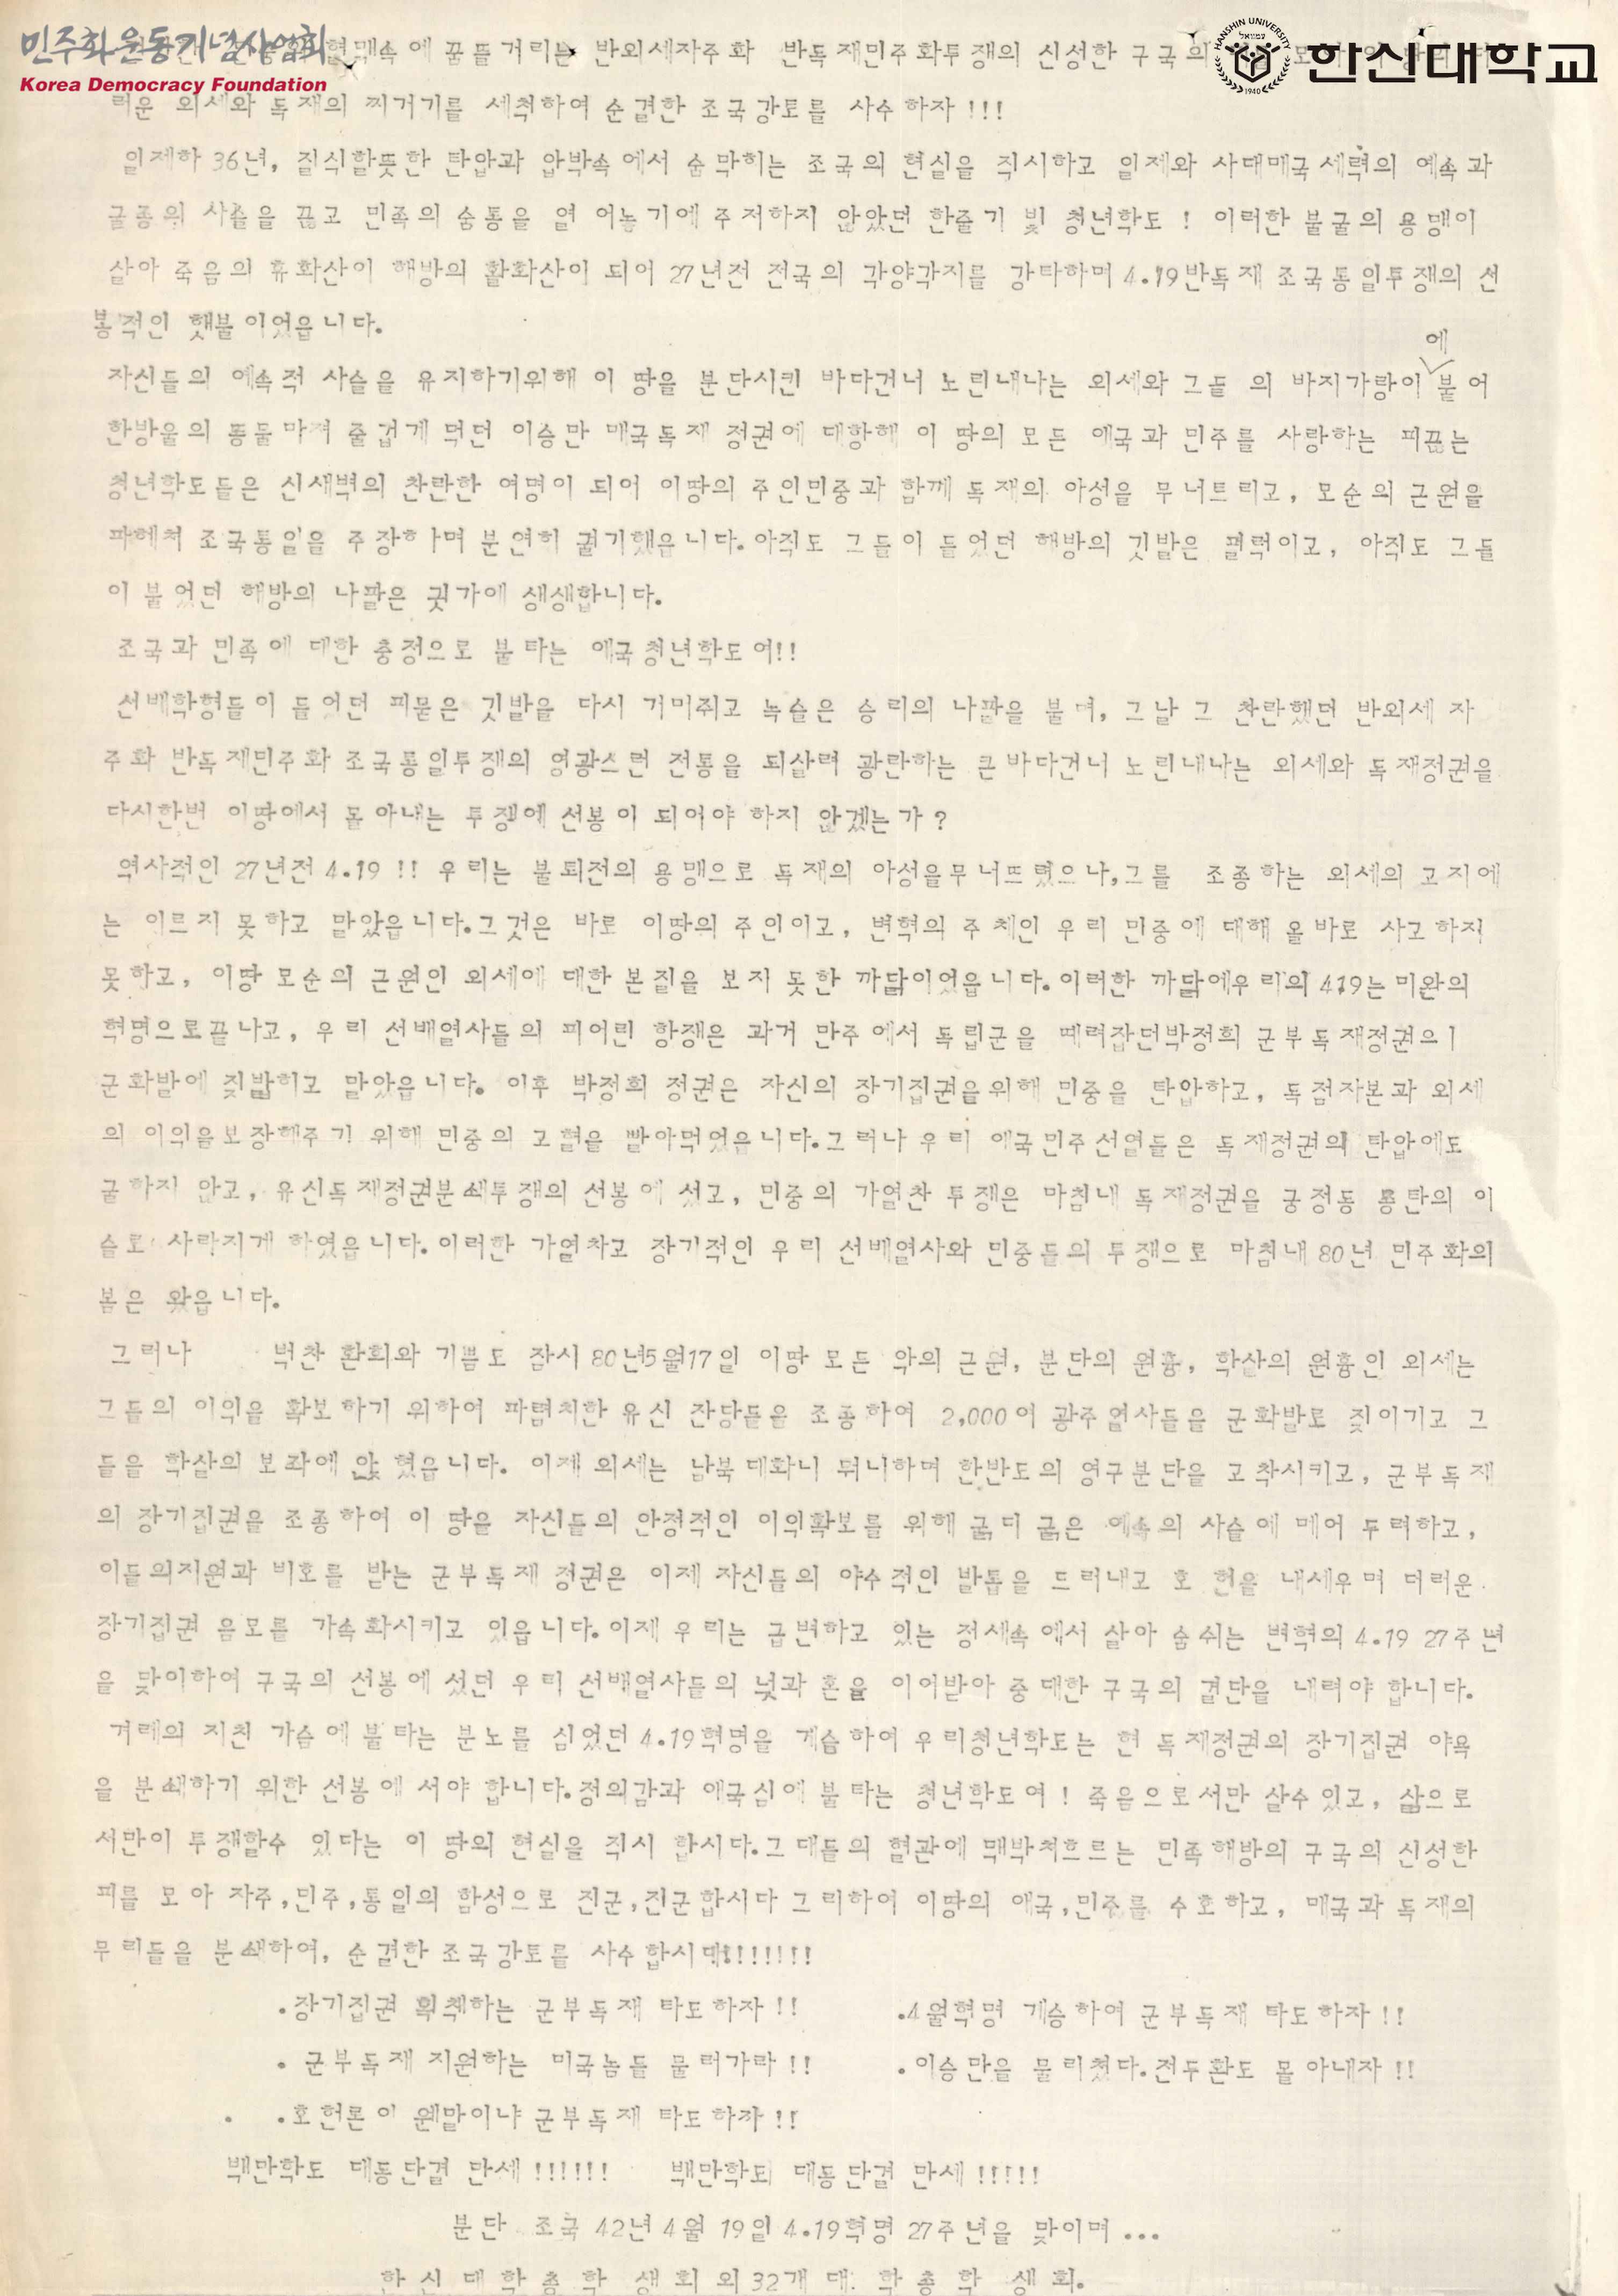 민주화운동기념사업회
Korea Democracy Foundation
HANSHIN UNIVERSITY
1940
한신대학교
혈맥속에 꿈틀거리는 반외세자주화 반독재민주화투쟁의 신성한 구국의
러운 외세와 독재의 찌거기를 세척하여 순결한 조국강토를 사수하자 !!!
일제하 36년, 질식할듯한 탄압과 압박속에서 숨막히는 조국의 현실을 직시하고 일제와 사대매국세력의 예속과
굴종의 사슬을 끊고 민족의 숨통을 열어놓기에 주저하지 않았던 한줄기 빛 청년학도 ! 이러한 불굴의 용맹이
살아 죽음의 휴화산이 해방의 활화산이 되어 27년전 전국의 각양각지를 강타하며 4.19반독재 조국통일투쟁의 선
봉적인 횃불이었읍니다.
에
자신들의 예속적 사슬을 유지하기위해 이 땅을 분단시킨 바다건너 노린내나는 외세와 그들 의 바지가랑이 붙어
한방울의 똥물마저 즐겁게 먹던 이승만 매국독재 정권에 대항해 이 땅의 모든 애국과 민주를 사랑하는 피끓는
청년학도들은 신새벽의 찬란한 여명이 되어 이땅의 주인민중과 함께 독재의 아성을 무너트리고, 모순의 근원을
파헤쳐 조국통일을 주장하며 분연히 궐기했읍니다.아직도 그들이 들었던 해방의 깃발은 펄럭이고, 아직도 그들
이 불었던 해방의 나팔은 귓가에 생생합니다.
조국과 민족에 대한 충정으로 불타는 애국청년학도여!!
선배학형들이 들었던 피묻은 깃발을 다시 거머쥐고 녹슬은 승리의 나팔을 불며, 그날 그 찬란했던 반외세 자
주화 반독재민주화 조국통일투쟁의 영광스런 전통을 되살려 광란하는 큰바다건너 노린내나는 외세와 독재정권을
다시한번 이땅에서 몰아내는 투쟁에 선봉이 되어야 하지 않겠는가?
역사적인 27년전 4.19 !! 우리는 불퇴전의 용맹으로 독재의 아성을무너뜨렸으나,그를 조종하는 외세의 고지에
는 이르지 못하고 말았읍니다.그것은 바로 이땅의 주인이고, 변혁의 주체인 우리 민중에 대해 올바로 사고하지
못하고, 이땅 모순의 근원인 외세에 대한 본질을 보지 못한 까닭이었읍니다.이러한 까닭에우리의 419는 미완의
혁명으로끝나고, 우리 선배열사들의 피어린 항쟁은 과거 만주에서 독립군을 때려잡던박정희 군부독재정권으ㅣ
군화발에 짓밟히고 말았읍니다. 이후 박정희 정권은 자신의 장기집권을위해 민중을 탄압하고, 독점자본과 외세
의 이익을보장해주기 위해 민중의 고혈을 빨아먹었읍니다.그러나 우리 애국민주선열들은 독재정권의 탄압에도
굴하지 않고, 유신독재정권분쇄투쟁의 선봉에 섰고, 민중의 가열찬 투쟁은 마침내 독재정권을 궁정동 총탄의 이
슬로 사라지게 하였읍니다.이러한 가열차고 장기적인 우리 선배열사와 민중들의 투쟁으로 마침내 80년 민주화의
봄은 왔읍니다.
그러나 벅찬 환희와 기쁨도 잠시 80년5월17일 이땅 모든 악의 근원, 분단의 원흉, 학살의 원흉인 외세는
그들의 이익을 확보하기 위하여 파렴치한 유신 잔당들을 조종하여 2,000여 광주열사들을 군화발로 짓이기고 그
들을 학살의 보좌에 앉혔읍니다. 이제 외세는 남북대화니 뭐니하며 한반도의 영구분단을 고착시키고, 군부독재
의 장기집권을 조종하여 이 땅을 자신들의 안정적인 이익확보를 위해 굵디 굵은 예속의 사슬에 메어 두려하고,
이들의지원과 비호를 받는 군부독재 정권은 이제 자신들의 야수적인 발톱을 드러내고 호헌을 내세우며 더러운
장기집권 음모를 가속화시키고 있읍니다.이제 우리는 급변하고 있는 정세속에서 살아 숨쉬는 변혁의 4.19 27주년
을 맞이하여 구국의 선봉에 섰던 우리 선배열사들의 넋과 혼을 이어받아 중대한 구국의 결단을 내려야 합니다.
겨레의 지친 가슴에 불타는 분노를 심었던 4.19혁명을 계승하여 우리청년학도는 현 독재정권의 장기집권 야욕
을 분쇄하기 위한 선봉에 서야 합니다.정의감과 애국심에 불타는 청년학도여 ! 죽음으로서만 살수있고, 삶으로
서만이 투쟁할수 있다는 이 땅의 현실을 직시 합시다.그대들의 혈관에 맥박쳐흐르는 민족해방의 구국의 신성한
피를 모아 자주,민주,통일의 함성으로 진군,진군합시다 그리하여 이땅의 애국,민주를 수호하고, 매국과 독재의
무리들을 분쇄하여, 순결한 조국강토를 사수합시다!!!!!!!!
.장기집권 획책하는 군부독재 타도하자 !! .4월혁명 계승하여 군부독재 타도하자 !!
. 군부독재 지원하는 미국놈들 물러가라 !! .이승만을 물리쳤다.전두환도 몰아내자 !!
. .호헌론이 웬말이냐 군부독재 타도하자 !!
백만학도 대동단결 만세 !!!!!! 백만학도 대동단결 만세 !!!!!
분단 조국 42년 4월 19일 4.19혁명 27주년을 맞이며 ...
한신대학총학생회외32개대 학총학생회.